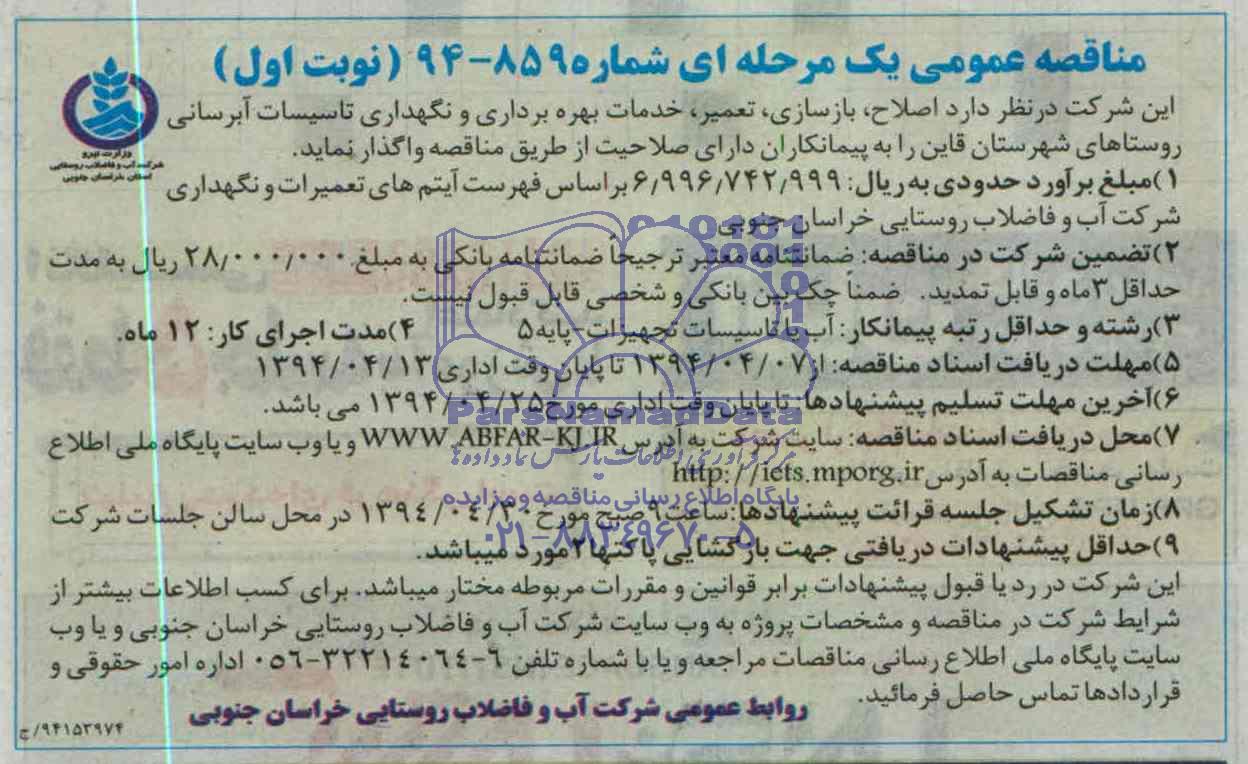 مناقصه عمومی یک مرحله ای شماره ۸۵۹-۹۴ (نوبت اول)
وزارت نیرو
شرکت آب و فاضلاب روستایی
استان خراسان جنوبی
این شرکت درنظر دارد اصلاح، بازسازی، تعمیر، خدمات بهره برداری و نگهداری تاسیسات آبرسانی
روستاهای شهرستان قاین را به پیمانکاران دارای صلاحیت از طریق مناقصه واگذار نماید.
۱)مبلغ برآورد حدودی به ریال: ۶٫۹۹۶٫۷۴۲٫۹۹۹ براساس فهرست آیتم های تعمیرات و نگهداری
شرکت آب و فاضلاب روستایی خراسان جنوبی
۲)تضمین شرکت در مناقصه: ضمانتنامه معتبر ترجیحاً ضمانتنامه بانکی به مبلغ ۲۸٫۰۰۰٫۰۰۰ ریال به مدت
حداقل ۳ماه و قابل تمدید. ضمناً چک بین بانکی و شخصی قابل قبول نیست.
۳)رشته و حداقل رتبه پیمانکار: آب یا تاسیسات تجهیزات-پایه۵ ۴)مدت اجرای کار: ۱۲ ماه.
۵)مهلت دریافت اسناد مناقصه: از ۱۳۹۴/۰۴/۰۷ تا پایان وقت اداری ۱۳۹۴/۰۴/۱۳
۶)آخرین مهلت تسلیم پیشنهادها: تا پایان وقت اداری مورخ ۱۳۹۴/۰۴/۲۵ می باشد.
۷)محل دریافت اسناد مناقصه: سایت شرکت به آدرس WWW.ABFAR-KJ.IR و یا وب سایت پایگاه ملی اطلاع
رسانی مناقصات به آدرس http://iets.mporg.ir
۸)زمان تشکیل جلسه قرائت پیشنهادها: ساعت ۹ صبح مورخ ۱۳۹٤/۰٤/۳۰ در محل سالن جلسات شرکت
۹)حداقل پیشنهادات دریافتی جهت بازگشایی پاکتها ۲ مورد میباشد.
این شرکت در رد یا قبول پیشنهادات برابر قوانین و مقررات مربوطه مختار میباشد. برای کسب اطلاعات بیشتر از
شرایط شرکت در مناقصه و مشخصات پروژه به وب سایت شرکت آب و فاضلاب روستایی خراسان جنوبی و یا وب
سایت پایگاه ملی اطلاع رسانی مناقصات مراجعه و یا با شماره تلفن ۶-۳۲۲۱٤۰٦٤-۰۵۶ اداره امور حقوقی و
قراردادها تماس حاصل فرمائید.
روابط عمومی شرکت آب و فاضلاب روستایی خراسان جنوبی
۹۴۱۵۳۹۷۴/ج
ParsNamadData
مرکز فرآوری اطلاعات پارس نماد داده ها
پایگاه اطلاع رسانی مناقصه و مزایده
۰۲۱-۸۸۳۴۹۶۷۰-۵